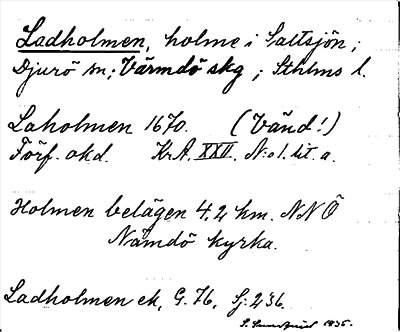 Ladholmen, holme i Saltsjön;
Djurö sn; Värmdö skg; Sthlms l.
Laholmen 1670. (Vänd!)
Förf. okd. Kr.A. XXII. N:o 1. lit. a.
Holmen belägen 4.2 km. NNÖ
Nämdö kyrka.
Ladholmen ek, G. 76, Sj: 236.
1935.